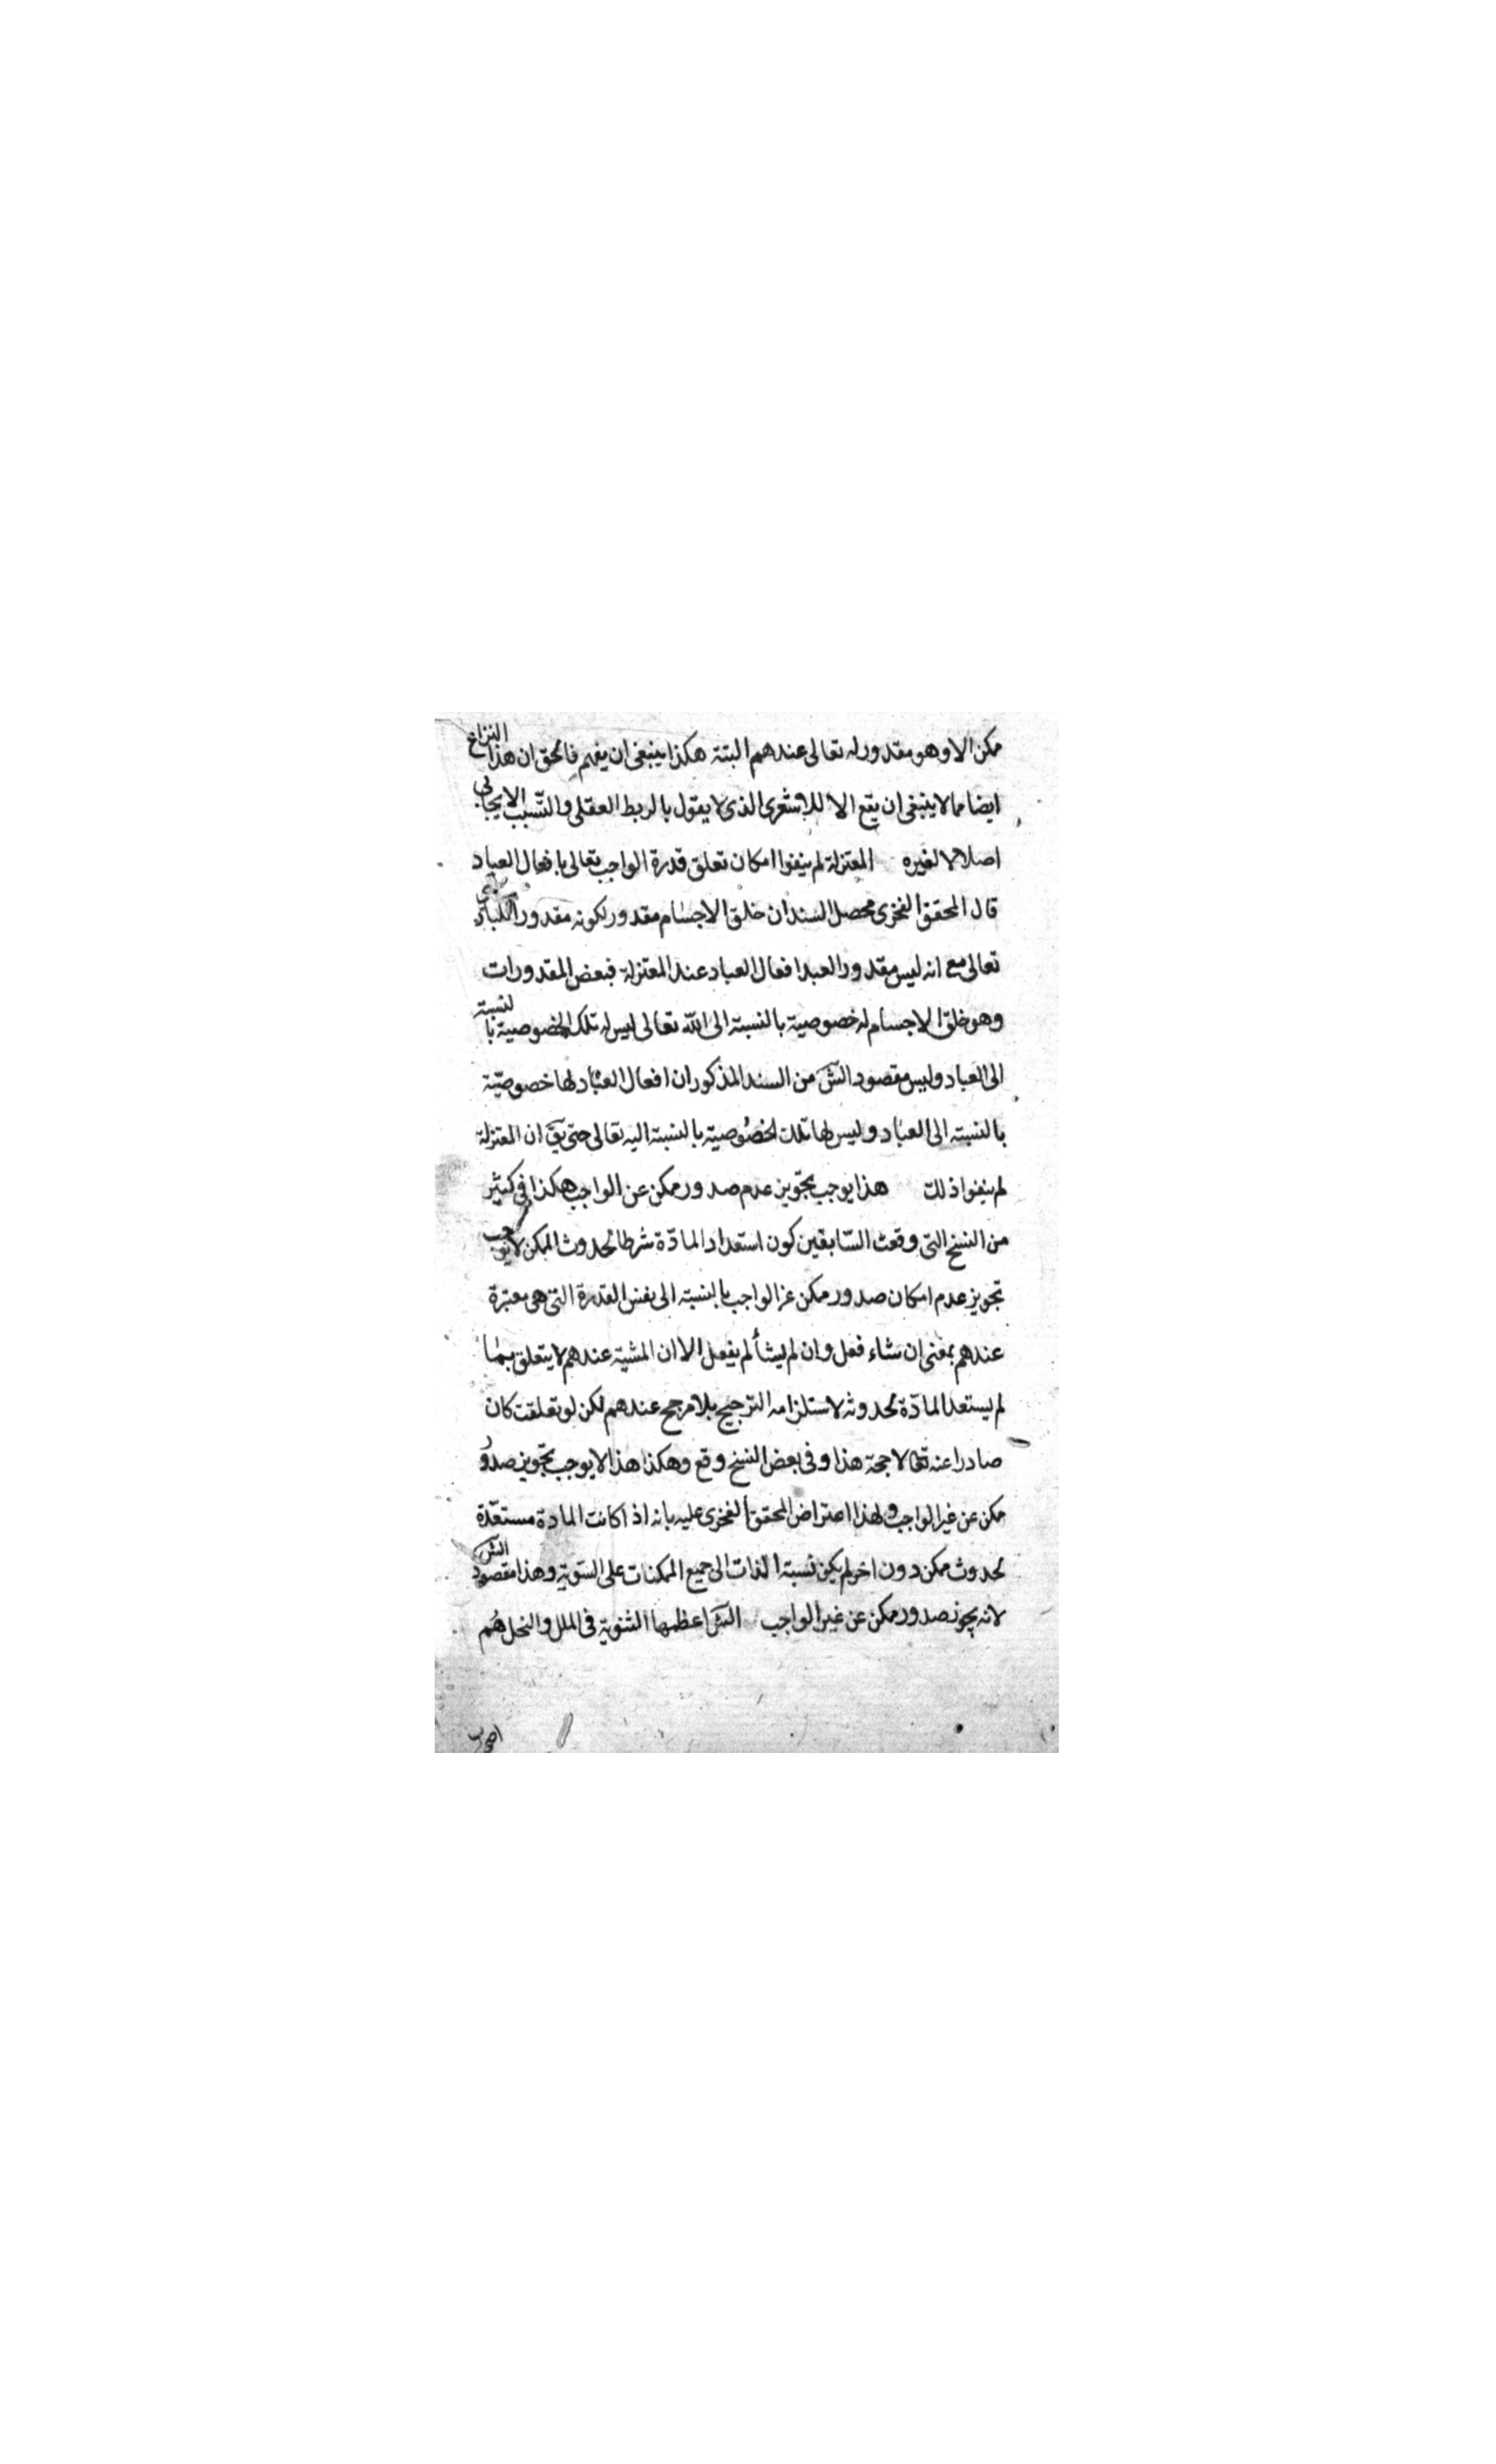 ممكن الا وهو مقدور له تعالى عندهم البتة هكذا ينبغى ان يفهم فالحق ان هذا النزاع
ايضا مما لا ينبغى ان يقع الا للاشعرى الذى لا يقول بالربط العقلى والتسبب الايجابى
اصلا لا لغيره المعتزلة لم ينفوا امكان تعلق قدرة الواجب تعالى بافعال العباد
قال المحقق الفخرى محصل السند ان خلق الاجسام مقدور لكونه مقدورا للبارى
تعالى مع انه ليس مقدور العبد افعال العباد عند المعتزلة فبعض المقدورات
وهو خلق الاجسام له خصوصية بالنسبة الى الله تعالى ليس له تلك الخصوصية بالنسبة
الى العباد وليس مقصود الش من السند المذكور ان افعال العباد لها خصوصيّة
بالنسبة الى العباد وليس لها تلك الخصوصية بالنسبة اليه تعالى حتى يق ان المعتزلة
لم ينفوا ذلك هذا يوجب تجويز عدم صدور ممكن عن الواجب هكذا فى كثير
من النسخ التى وقعت السّابقين كون استعداد المادّة شرطا لحدوث الممكن لا يوجب
تجويز عدم امكان صدور ممكن عن الواجب بالنسبة الى نفس القدرة التى هى معتبرة
عندهم بمعنى ان شاء فعل وان لم يشأ لم يفعل الا ان المشية عندهم لا يتعلق بما
لم يستعد المادّة لحدوثه لاستلزامه الترجيح بلا مرجح عندهم لكن لو تعلقت كان
صادرا عنه تعالى لا محة هذا وفى بعض النسخ وقع وهكذا هذا لا يوجب تجويز صدور
ممكن عن غير الواجب ولهذا اعتراض المحقق الفخرى عليه بانه اذا كانت المادة مستعدّة
لحدوث ممكن دون اخر لم يكن نسبة الذات الى جميع الممكنات على السّويّة وهذا مقصود الش
لانه يجوز صدور ممكن عن غير الواجب الش اعظمها الثنوية فى الملل والنحل هُم